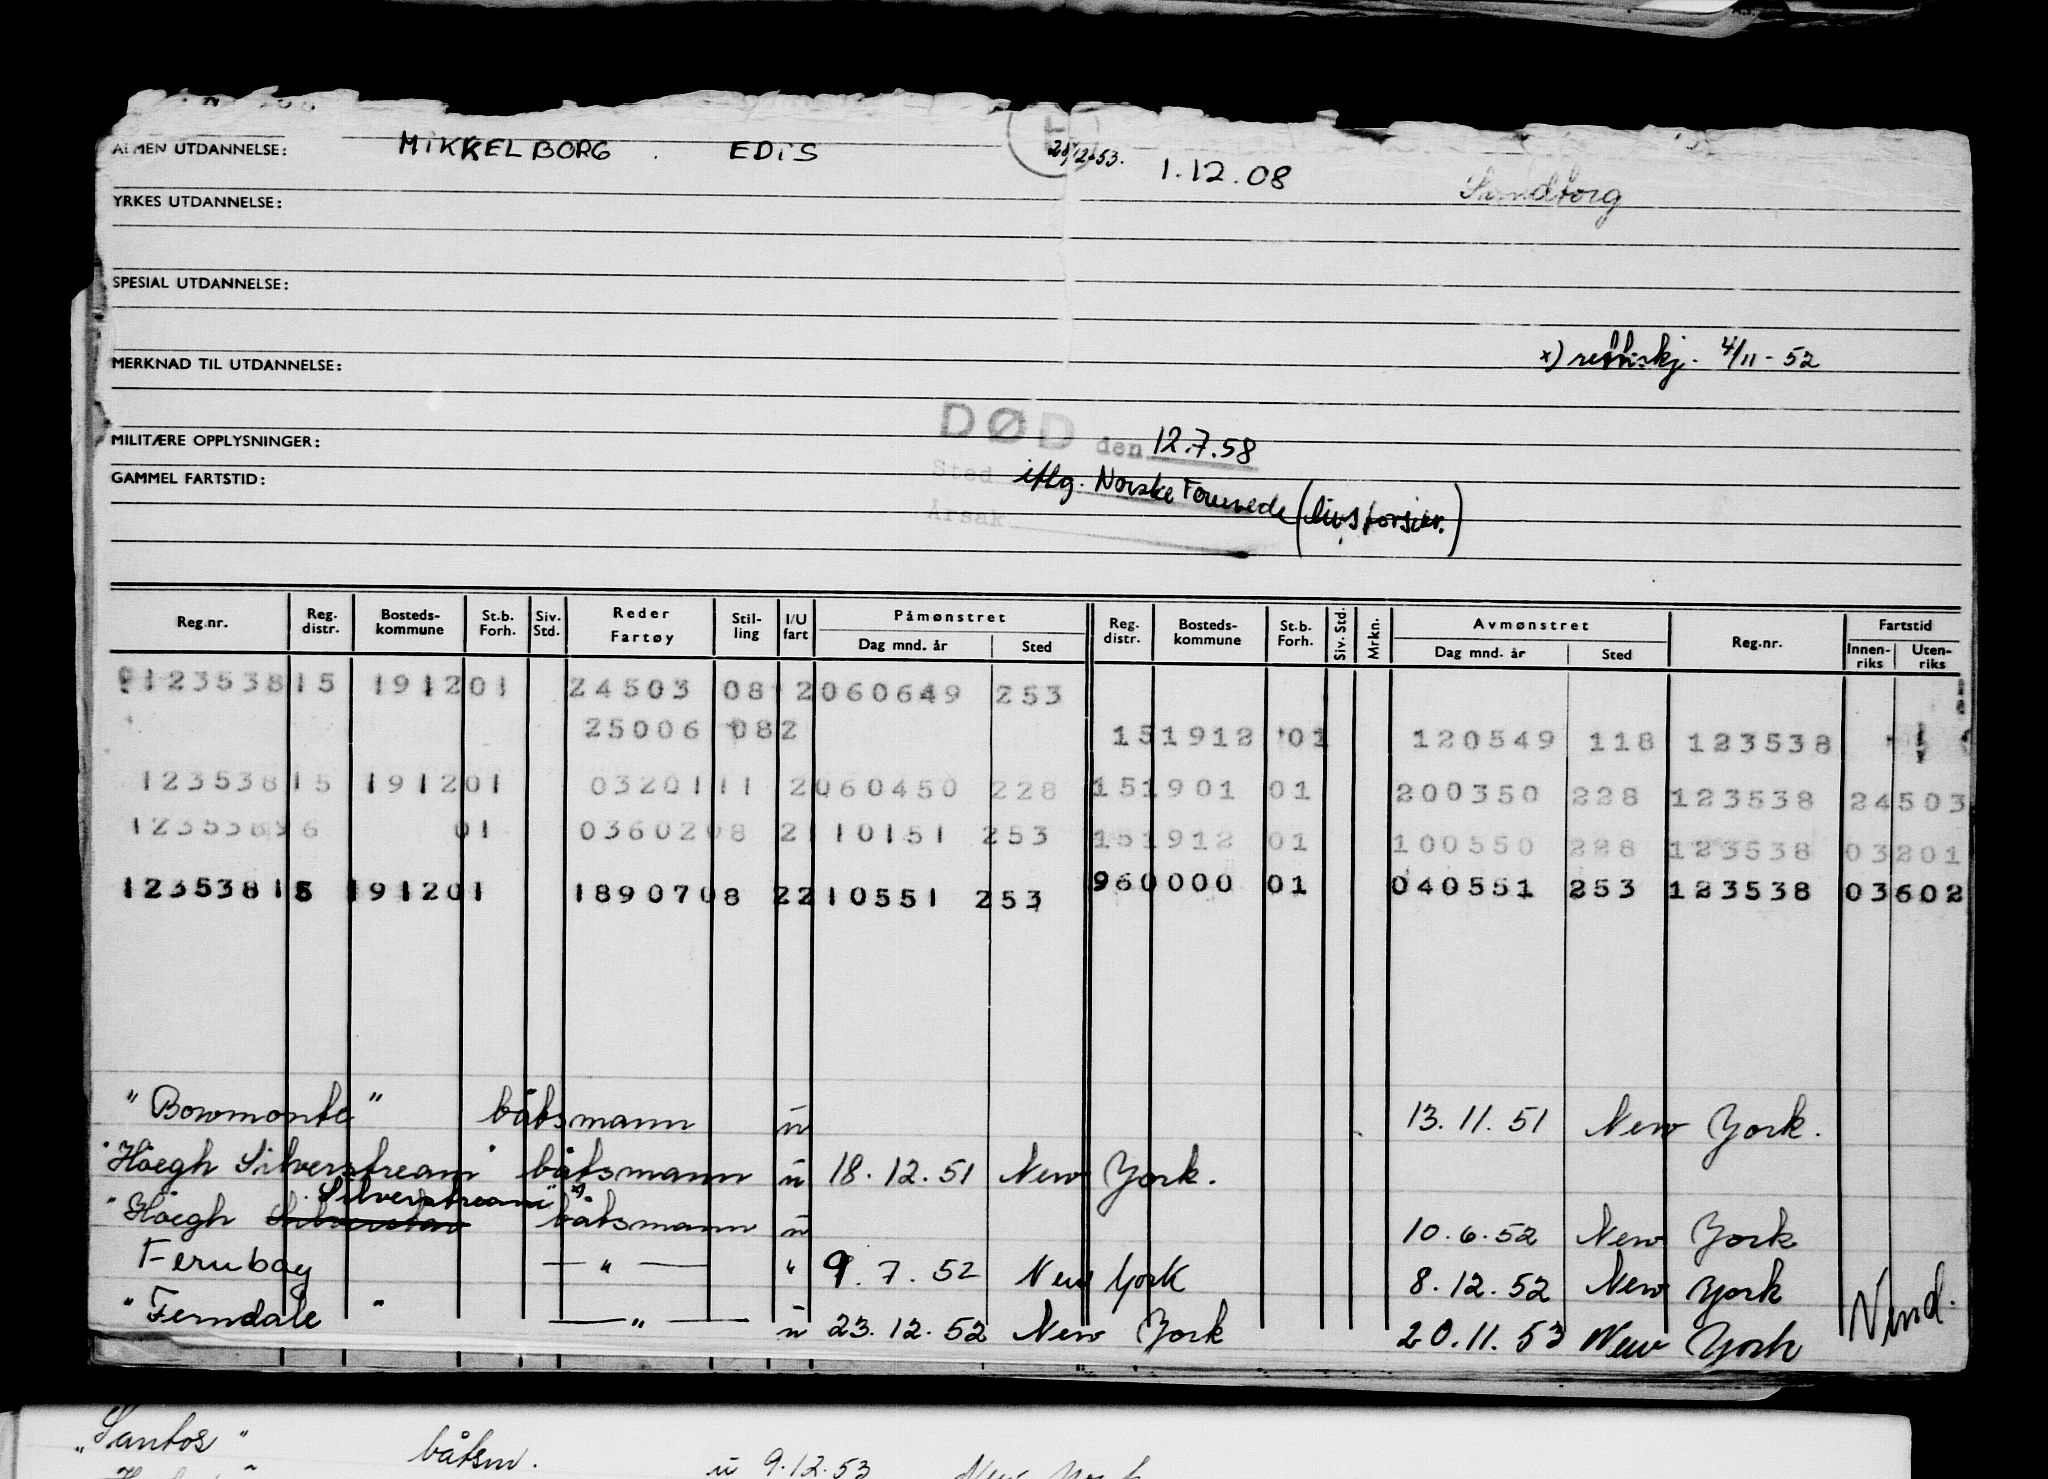 ALMEN UTDANNELSE: MIKKELBORG EDIS 28/12-53. 1.12.08 Sandtorg
YRKES UTDANNELSE:
SPESIAL UTDANNELSE:
MERKNAD TIL UTDANNELSE: x) rettskj. 4/11-52
MILITÆRE OPPLYSNINGER: DØD den 12.7.58
GAMMEL FARTSTID: Sted iflg. Norske (livsforsikr.)
Årsak
Reg.nr. Reg. distr. Bosteds-kommune St.b. Forh. Siv. Std. Reder Fartøy Stil-ling I/U fart Påmønstret Dag mnd. år Sted Reg. distr. Bosteds-kommune St.b. Forh. Siv. Std. Mrkn. Avmønstret Dag mnd. år Sted Reg.nr. Fartstid Innen-riks Uten-riks
12353815 191201 24503 08 2060649 253
25006 082 151912 01 120549 118 123538
12353815 191201 0320111 2060450 228 151901 01 200350 228 123538 24503
01 0360208 2110151 253 151912 01 100550 228 123538 03201
12353815 191201 1890708 2210551 253 960000 01 040551 253 123538 03602
"Bowmonte" båtsmann u 13.11.51 New York.
"Höegh Silverstream" båtsmann u 18.12.51 New York.
Silverstream" x)
"Höegh båtsmann u 10.6.52 New York
Fernbay — " — " 9.7.52 New York 8.12.52 New York
"Ferndale" — " — u 23.12.52 New York 20.11.53 New York
"Santos" båtsm. u 9.12.53 New York